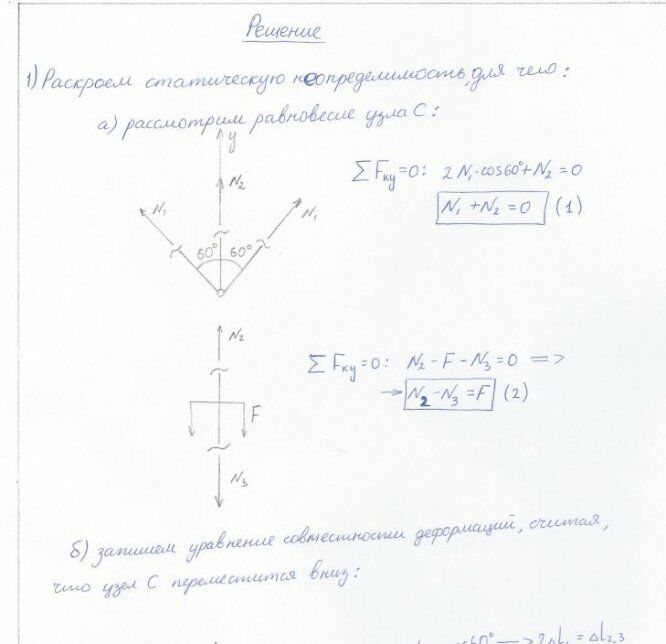 Решение
1) Раскроем статическую неопределимость, для чего:
а) рассмотрим равновесие узла С:
y
N₂
N₁ N₁
60° 60°
∑Fкy=0: 2N₁·cos60°+N₂=0
N₁+N₂=0 (1)
N₂
∑Fкy=0: N₂-F-N₃=0 =>
→ N₂-N₃=F (2)
F
N₃
б) запишем уравнение совместности деформаций, считая,
что узел С переместится вниз:
cos60° → 2Δl₁=Δl₂,₃